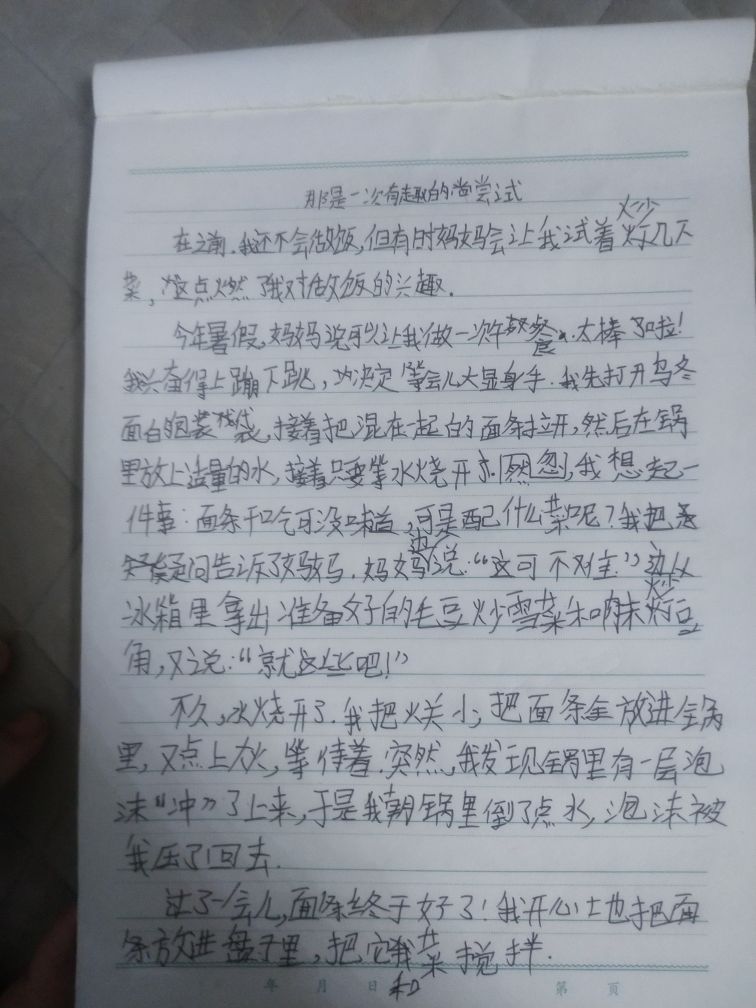 那是一次有趣的尝试
在之前，我还不会做饭，但有时妈妈会让我试着炒几下
菜，这点燃了我对做饭的兴趣。
今年暑假，妈妈说可以让我做一次午餐。太棒了啦！
我兴奋得上蹦下跳，决定等会儿大显身手。我先打开乌冬
面的包装袋，接着把混在一起的面条拉开，然后在锅
里放上适量的水，接着只要等水烧开。忽然，我想起一
件事：面条干吃可没味道，可是配什么菜呢？我把
疑问告诉了妈妈，妈妈说：“这可不对
冰箱里拿出准备好的毛豆炒雪菜和肉末炒豆
角，又说：“就这些吧！”
不久，水烧开了。我把火关小，把面条全放进锅
里，又点上大火，等待着。突然，我发现锅里有一层泡
沫“冲”了上来，于是我朝锅里倒了点水，泡沫被
我压了回去。
过了一会儿，面条终于好了！我开心地把面
条放进盘子里，把它和菜搅拌。
年 月 日 第 页